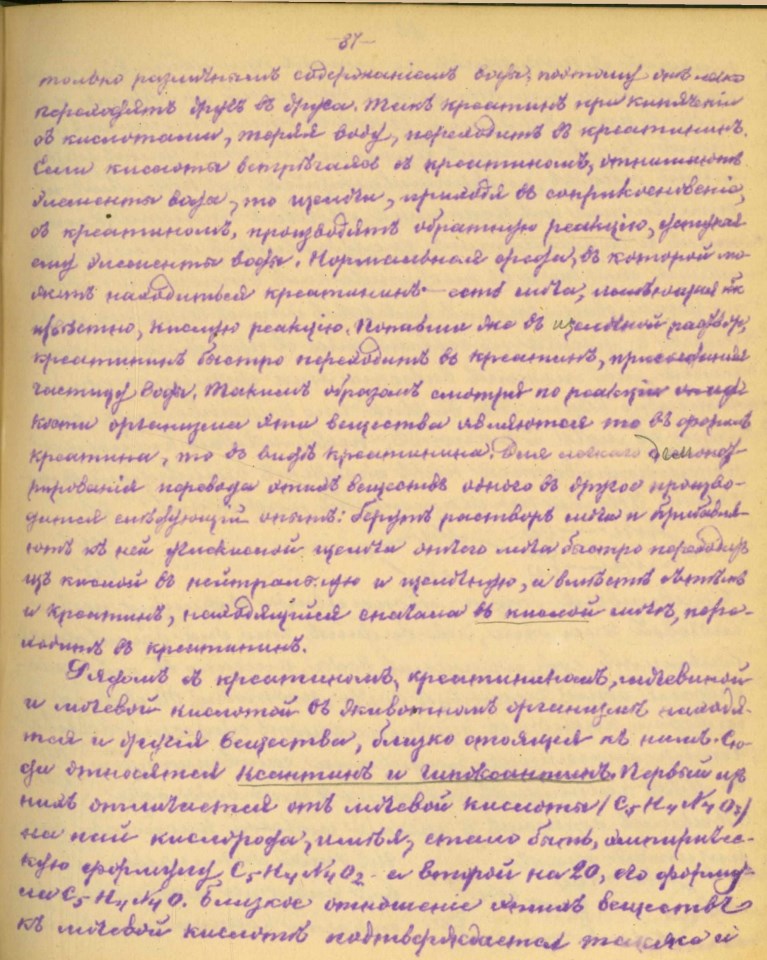 -87-
только различнымъ содержаніемъ воды, поэтому онѣ легко
переходятъ другъ въ друга. Такъ креатинъ при кипяченіи
съ кислотами, теряя воду, переходитъ въ креатининъ.
Если кислоты встрѣчаясь съ креатиномъ, отнимаютъ
элементы воды, то щелочи, приходя въ соприкосновеніе,
съ креатиномъ, производятъ обратную реакцію, уступая
ему элементы воды. Нормальная среда, въ которой мо-
жетъ находиться креатининъ - есть моча, имѣющая какъ
извѣстно, кислую реакцію. Попавши же въ щелочной растворъ,
креатининъ быстро переходитъ въ креатинъ, присоединяя
частицу воды. Такимъ образомъ смотря по реакціи жид-
кости организма эти вещества являются то въ формѣ
креатина, то въ видѣ креатинина. Для легкаго демонст-
рированія перевода этихъ веществъ одного въ другое произво-
дится слѣдующій опытъ: берутъ растворъ мочи и прибавля-
ютъ къ ней углекислой щелочи отчего моча быстро переходитъ
изъ кислой въ нейтральную и щелочную, а вмѣстѣ съ тѣмъ
и креатинъ, находящійся сначала въ кислой мочѣ, пере-
ходитъ въ креатининъ.
Рядомъ съ креатиномъ, креатининомъ, мочевиной
и мочевой кислотой въ животномъ организмѣ находя-
тся и другія вещества, близко стоящія къ нимъ. Сю-
да относятся ксантинъ и гипоксантинъ. Первый изъ
нихъ отличается отъ мочевой кислоты (C5H4N4O3)
на пай кислорода, имѣя, стало быть, эмпиричес-
кую формулу C5H4N4O2 - а второй на 2O, его форму-
ла C5H4N4O. Близкое отношеніе этихъ веществъ
къ мочевой кислотѣ подтверждается также и